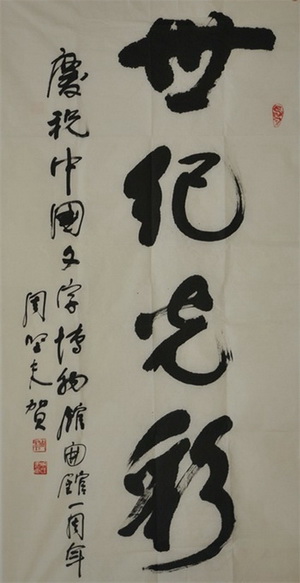 世纪光彩
慶祝中國文字博物館開館一周年
周堅夫賀